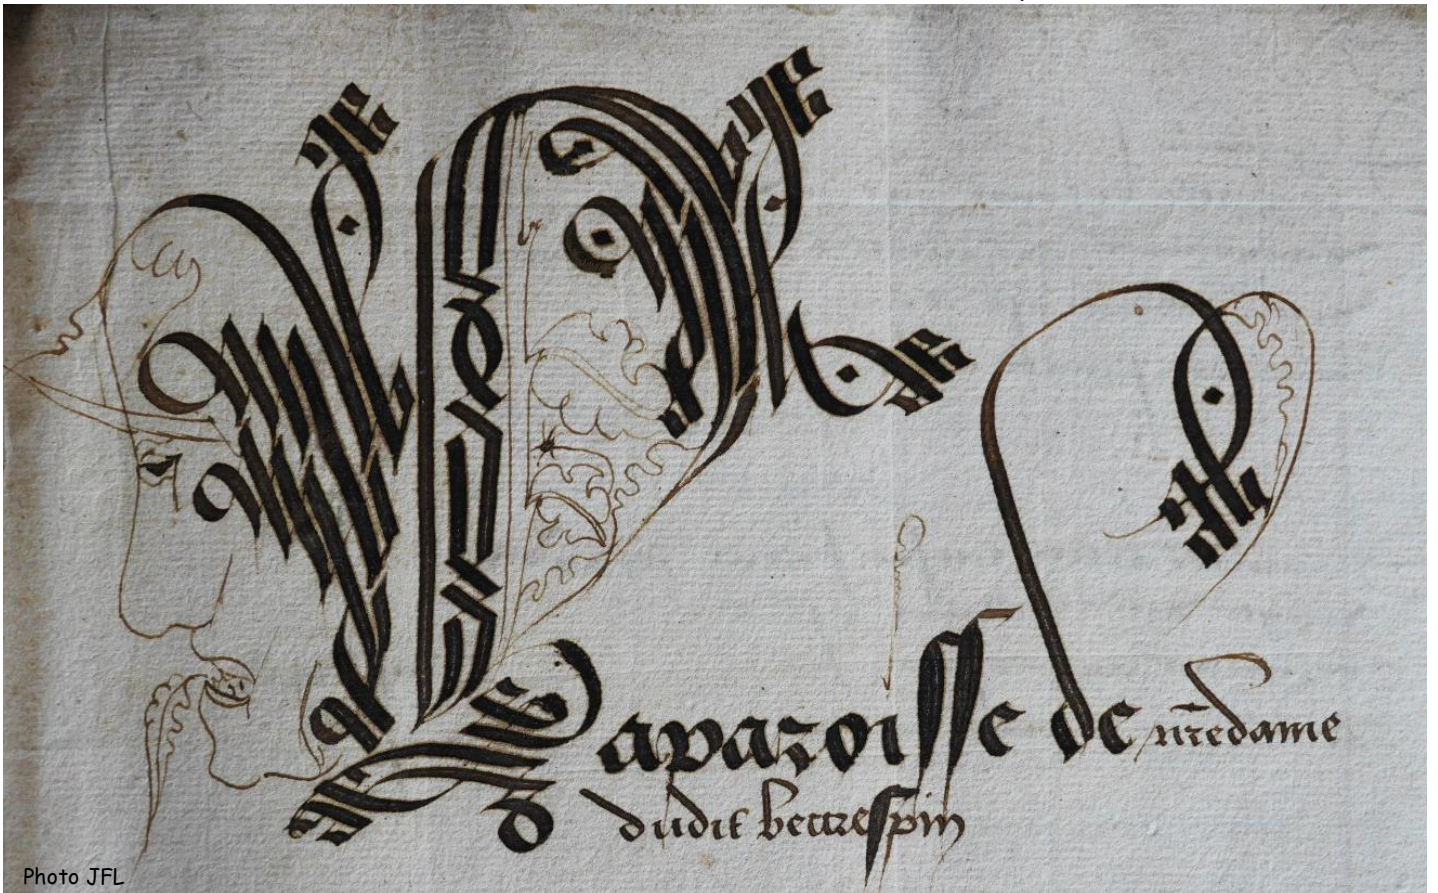 La paroisse de nr̃edame
dudit beccrespin
Photo JFL